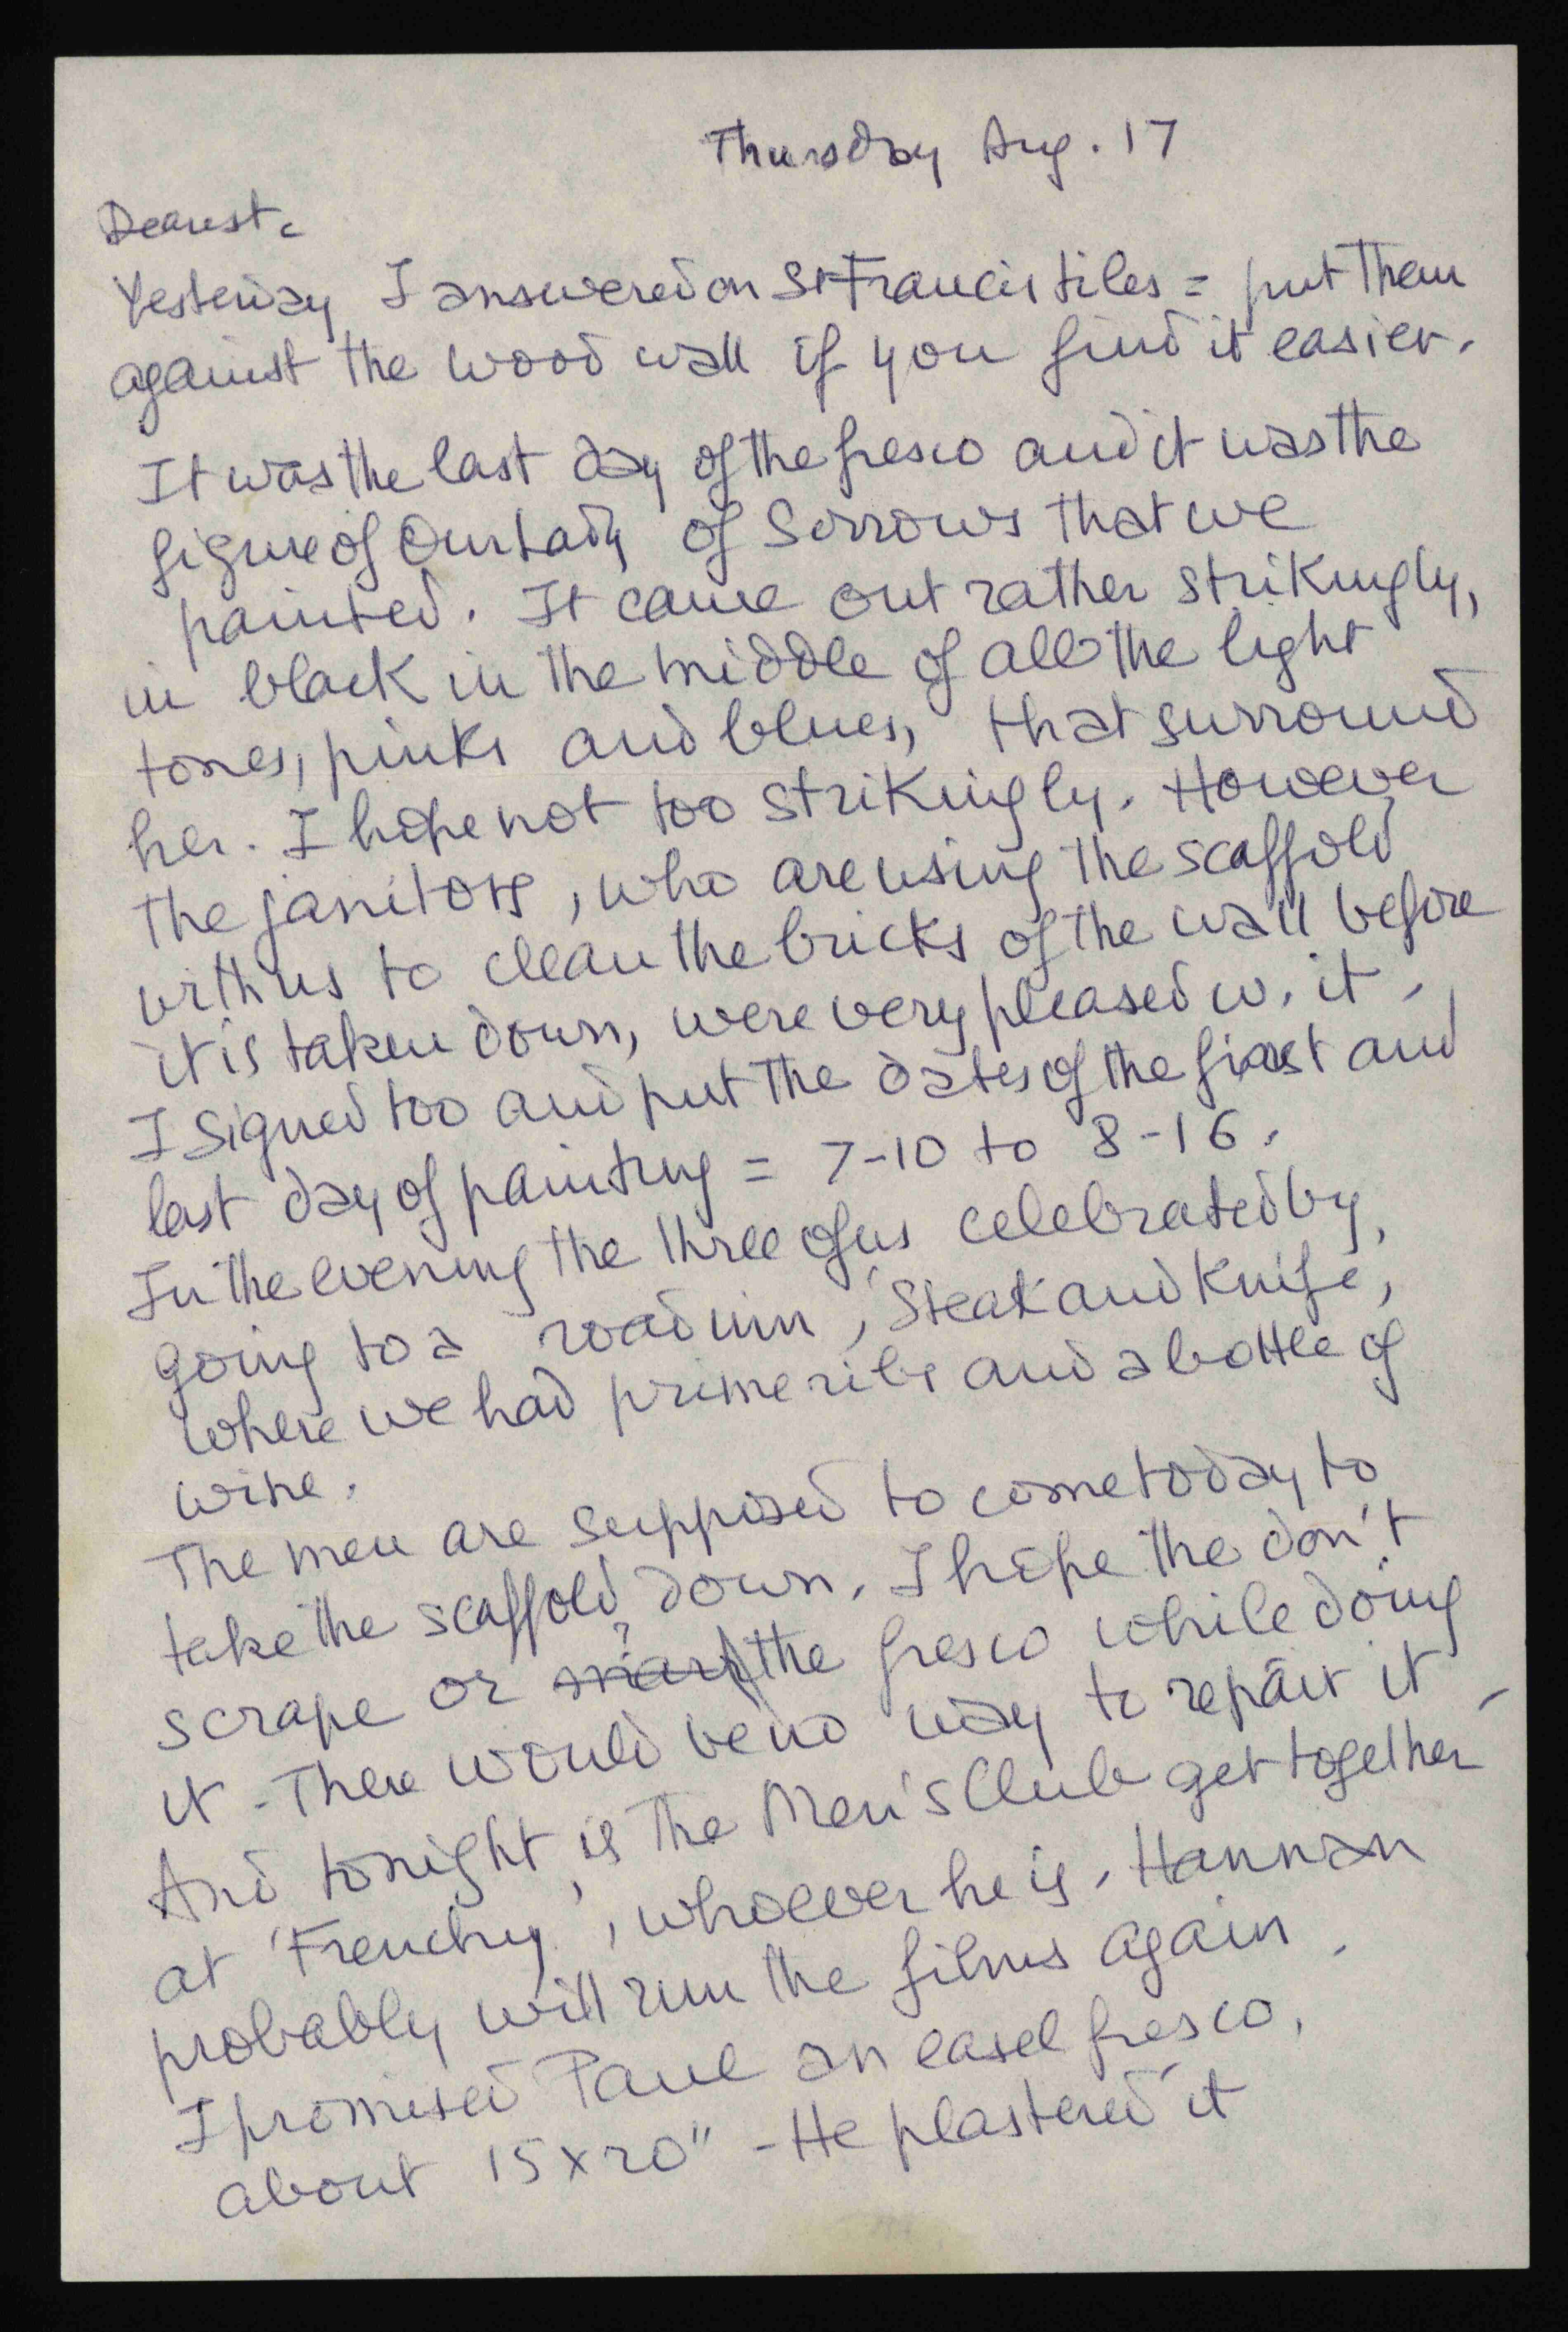 Thursday Aug. 17
Dearest.
Yesterday I answered on St Francis tiles = put them
against the wood wall if you find it easier.
It was the last day of the fresco and it was the
figure of Our Lady of Sorrows that we
painted. It came out rather strikingly,
in black in the middle of all the light
tones, pinks and blues, that surround
her. I hope not too strikingly. However
the janitors, who are using the scaffold
with us to clean the bricks of the wall before
it is taken down, were very pleased w. it.
I signed too and put the dates of the first and
last day of painting = 7-10 to 8-16.
In the evening the three of us celebrated by,
going to a road inn, 'Steak and Knife,
where we had prime ribs and a bottle of
wine.
The men are supposed to come today to
take the scaffold down. I hope the don't
scrape or the fresco while doing
it. There would be no way to repair it.
And tonight, is the Men's Club get together
at 'Frenchy', whoever he is. Hannan
probably will run the films again.
I promised Paul an easel fresco,
about 15 x 20" - He plastered it